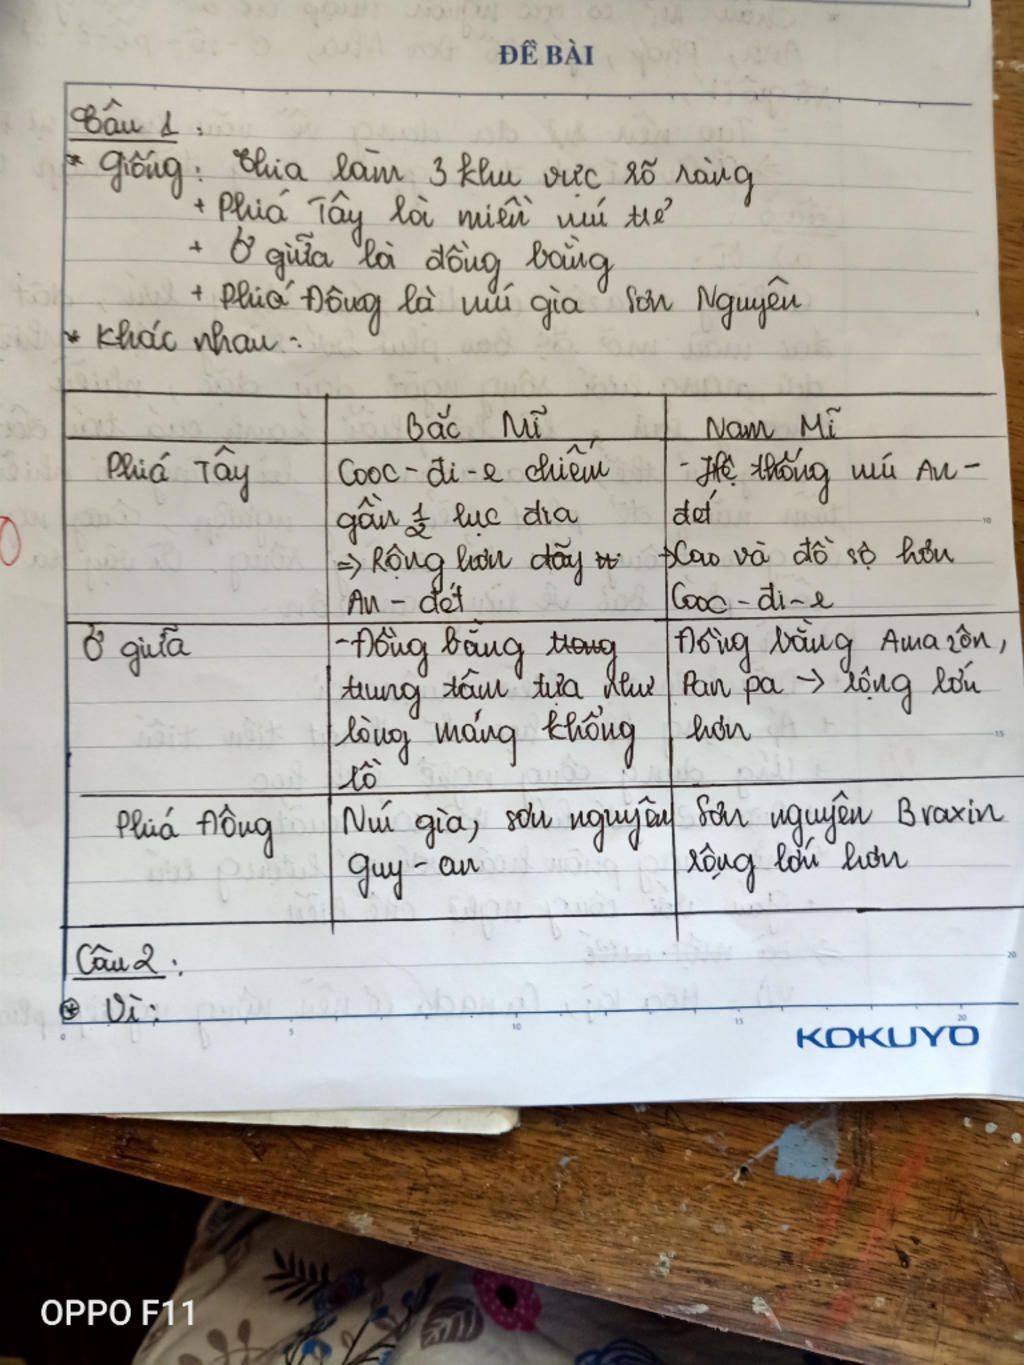 ĐỀ BÀI
Câu 1:
* Giống: Chia làm 3 khu vực rõ ràng
+ Phiá Tây là miền núi trẻ
+ Ở giữa là đồng bằng
+ Phiá Đông là núi già Sơn Nguyên
* Khác nhau:
Bắc Mĩ Nam Mĩ
Phiá Tây
Cooc-đi-e chiếm
gần 1/2 lục địa
=> Rộng hơn dãy
An-đét
- Hệ thống núi An-
đét
→Cao và đồ sộ hơn
Cooc-đi-e
Ở giữa
-Đồng bằng trong
trung tâm tựa như
lòng máng khổng
lồ
Đồng bằng Amazôn,
Pan pa → rộng lớn
hơn
Phiá Đông
Núi già, sơn nguyên
guy-an
Sơn nguyên Braxin
rộng lớn hơn
Câu 2:
* Vì:
5 10 15 20
KOKUYO
OPPO F11